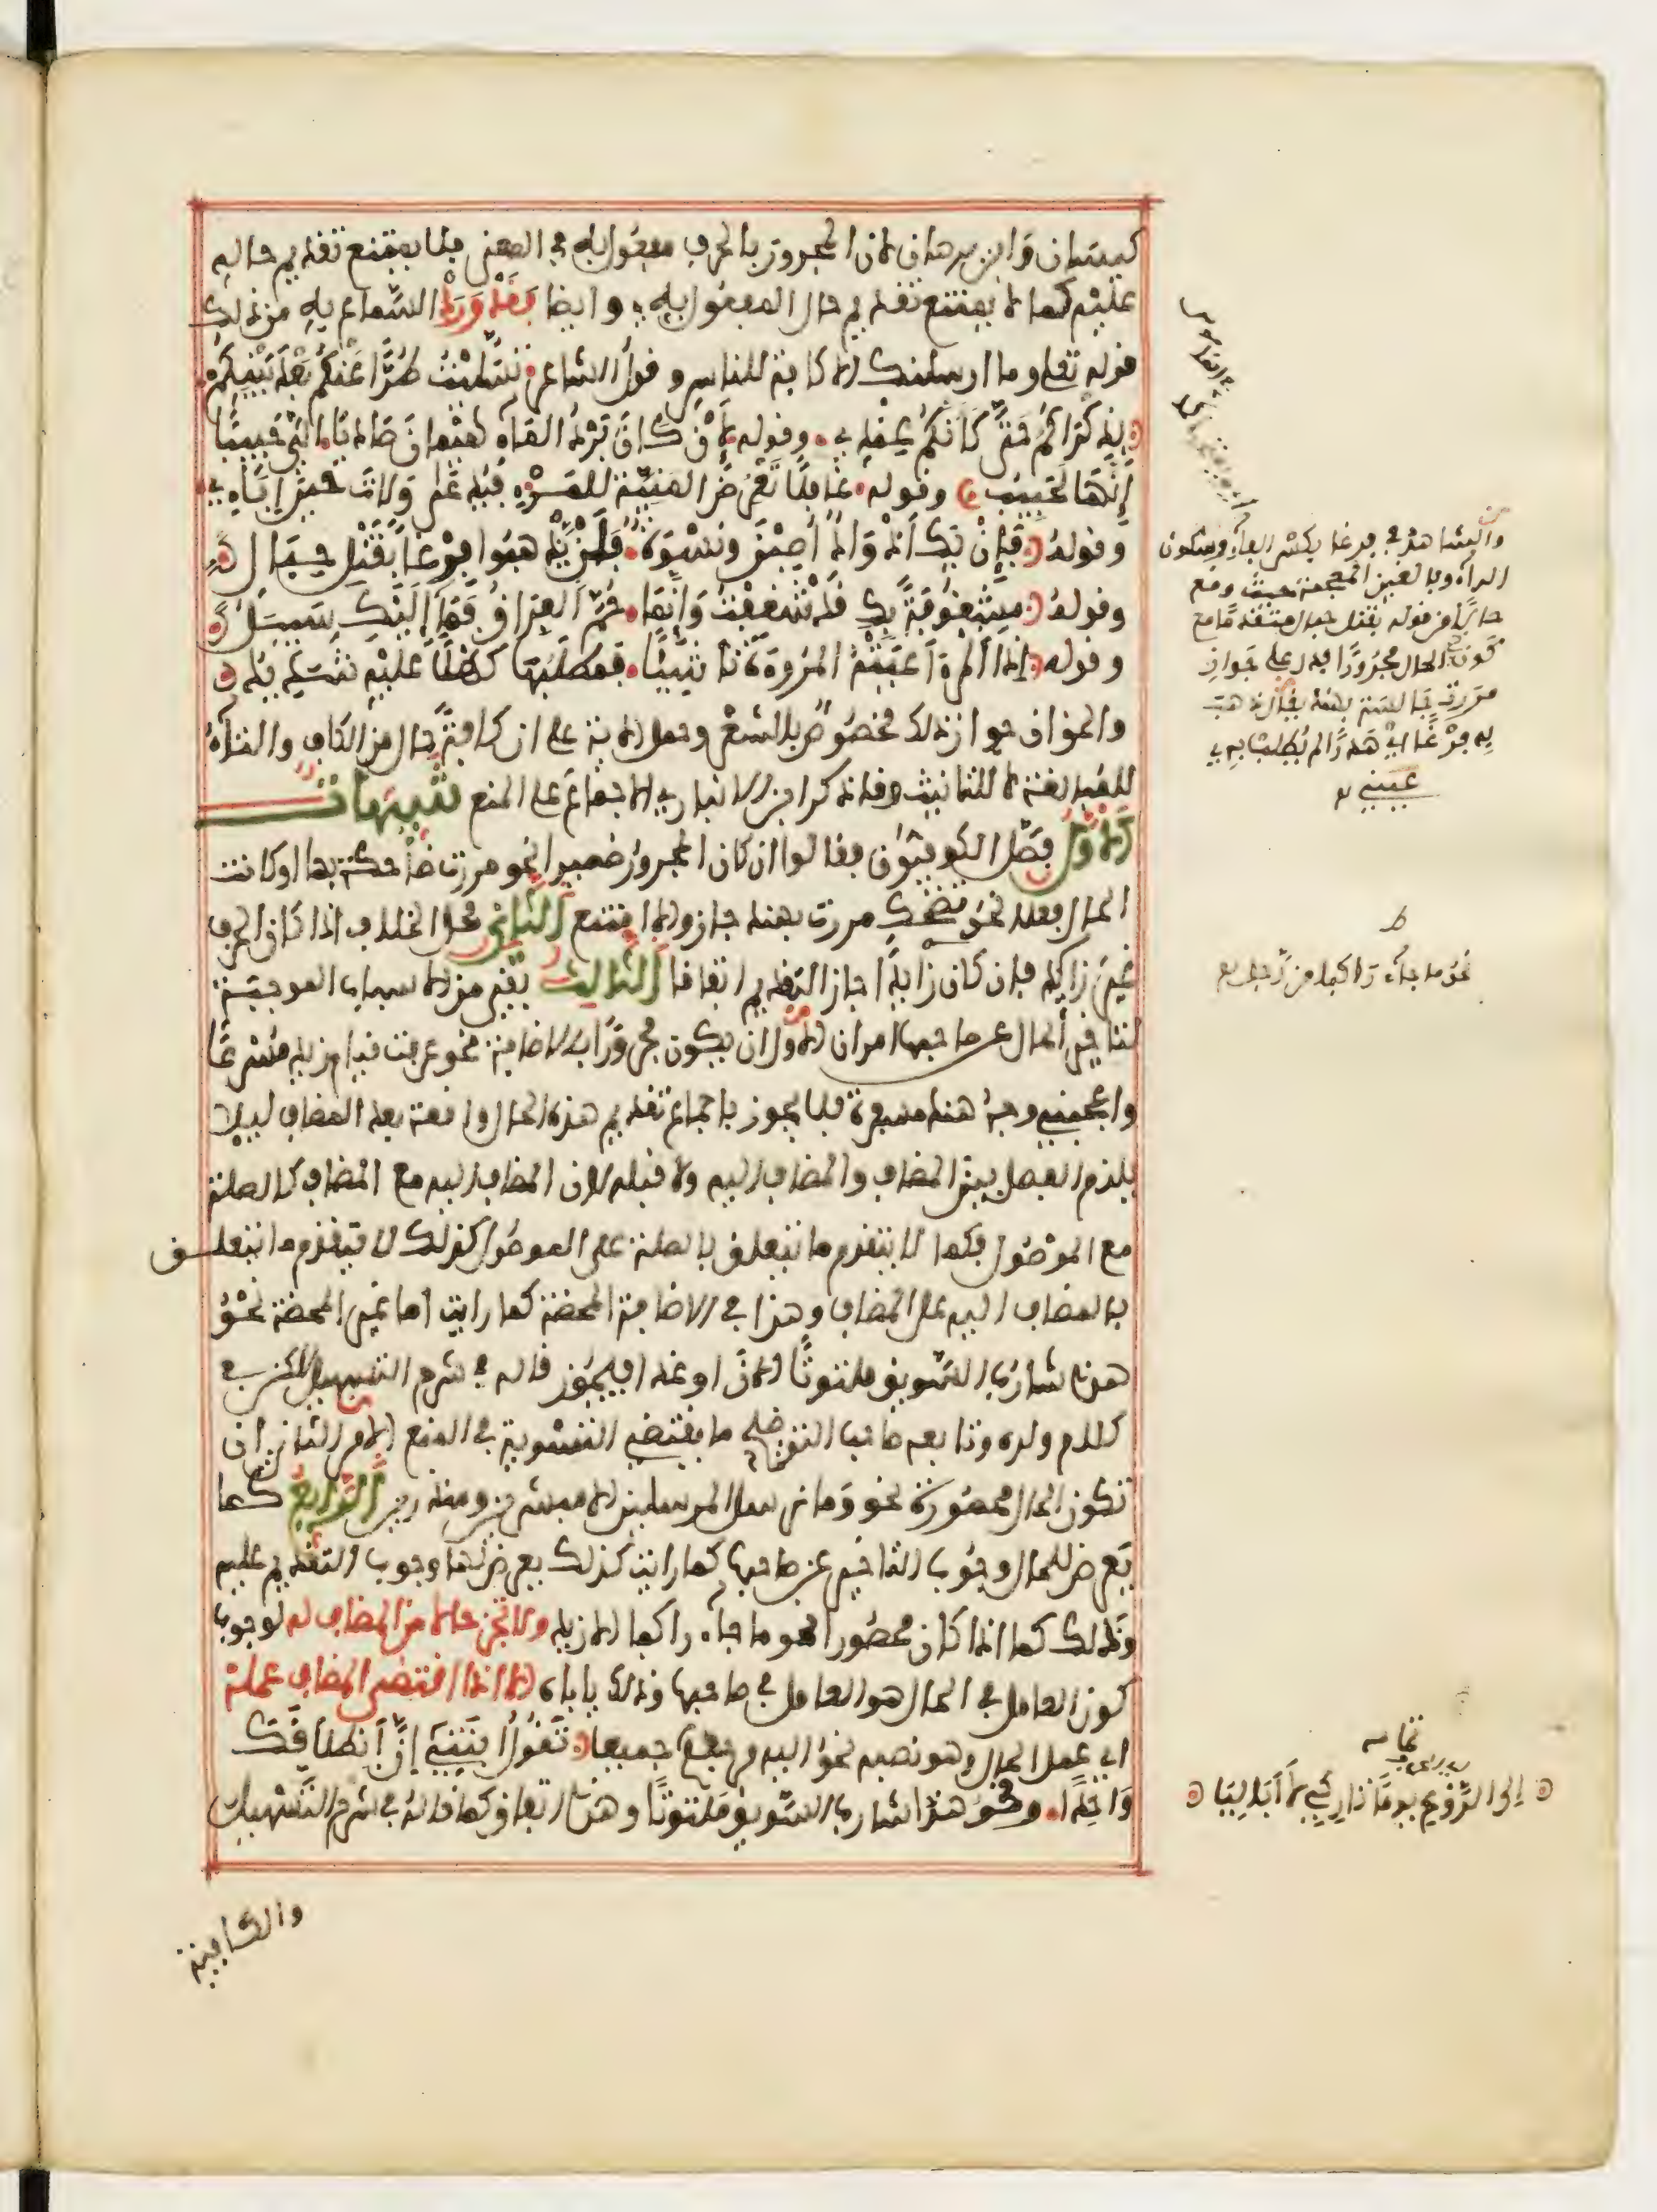 كيسان وابن برهان لان المجرور بالحرف مفعول به في المعنى فلا يمتنع تقديم حاله
عليه كما لا يمتنع تقديم حال المفعول به وايضا فقد ورد السماع به من ذلك
قوله تعلى وما ارسلنك الا كافة للناس وقول الشاعر تسليت طرا عنكم بعد بينكم
بذكراكم حتى كانكم عندي وقوله لئن كان برد الماء هيمان صاديا الي حبيبا
انها لحبيب وقوله غافلا تعرض المنية للمرء فيدعى ولات حين اباء
وقوله فان تك اذواد اصبن ونسوة فلن يذهبوا فرغا بقتل حبال
وقوله مشغوفة بك قد شغفت وانما حم الفراق فما اليك سبيل
وقوله اذا المرء اعيته المروءة ناشيئا فمطلبها كهلا عليه شديد
والحق ان جواز ذلك مخصوص بالشعر وحمل الاية على ان كافة حال من الكاف والتاء
للمبالغة لا للتانيث وقد ذكر ابن الانباري الاجماع على المنع تنبيهات
الاول فصل الكوفيون فقالوا ان كان المجرور ضميرا نحو مررت ضاحكة بها او كانت
الحال فعلا نحو تضحك مررت بهند جاز والا امتنع الثاني محل الخلاف اذا كان الحرف
غير زائد فان كان زايدا جاز التقديم اتفاقا الثالث بقي من الاسباب الموجبة
لتاخير الحال عن صاحبها امران الاول ان يكون مجرورا بالاضافة نحو عرفت قيام زيد مسرعا
واعجبني وجه هند مسفرة فلا يجوز باجماع تقديم هذه الحال واقعة بعد المضاف ليلا
يلزم الفصل بين المضاف والمضاف اليه ولا قبله لان المضاف اليه مع المضاف كالصلة
مع الموصول فكما لا يتقدم ما يتعلق بالصلة على الموصول كذلك لا يتقدم ما يتعلق
بالمضاف اليه على المضاف وهذا في الاضافة المحضة كما رايت اما غير المحضة نحو
هذا شارب السويق ملتوتا الان او غدا فيجوز قاله في شرح التسهيل لكن في
كلام ولده وتابعه صاحب التوضيح ما يقتضي التسوية في المنع الامر الثاني ان
تكون الحال محصورة نحو وما نرسل المرسلين الا مبشرين ومنذرين الرابع كما
يعرض للحال وجوب التاخير عن صاحبها كما رايت كذلك يعرض لها وجوب التقديم عليه
وذلك كما اذا كان محصورا نحو ما جاء راكبا الا زيد ولا تجز حالا من المضاف له لوجوب
كون العامل في الحال هو العامل في صاحبها وذلك ياباه الا اذا اقتضى المضاف عمله
اي عمل الحال وهو نصبه نحو اليه مرجعكم جميعا تقول ابنتي ان انطلاقك
واحدا ونحو هذا شارب السويق ملتوتا وهذا اتفاق كما قاله في شرح التسهيل
والشافية
والشاهد في فرغا بكسر الفاء وسكون
الراء وبالغين المعجمة حيث وقع
حالا من قوله بقتل حبال متقدما مع
كون الحال مجرورا فدل على جواز
مررت جالسة بهند يقال ذهب
به فرغا اي هدرا لم يطلب به
عيني
ط
نحو ما جاء راكبا من رجل
تمامه
الى الروع يوما تاركي لا اباليا